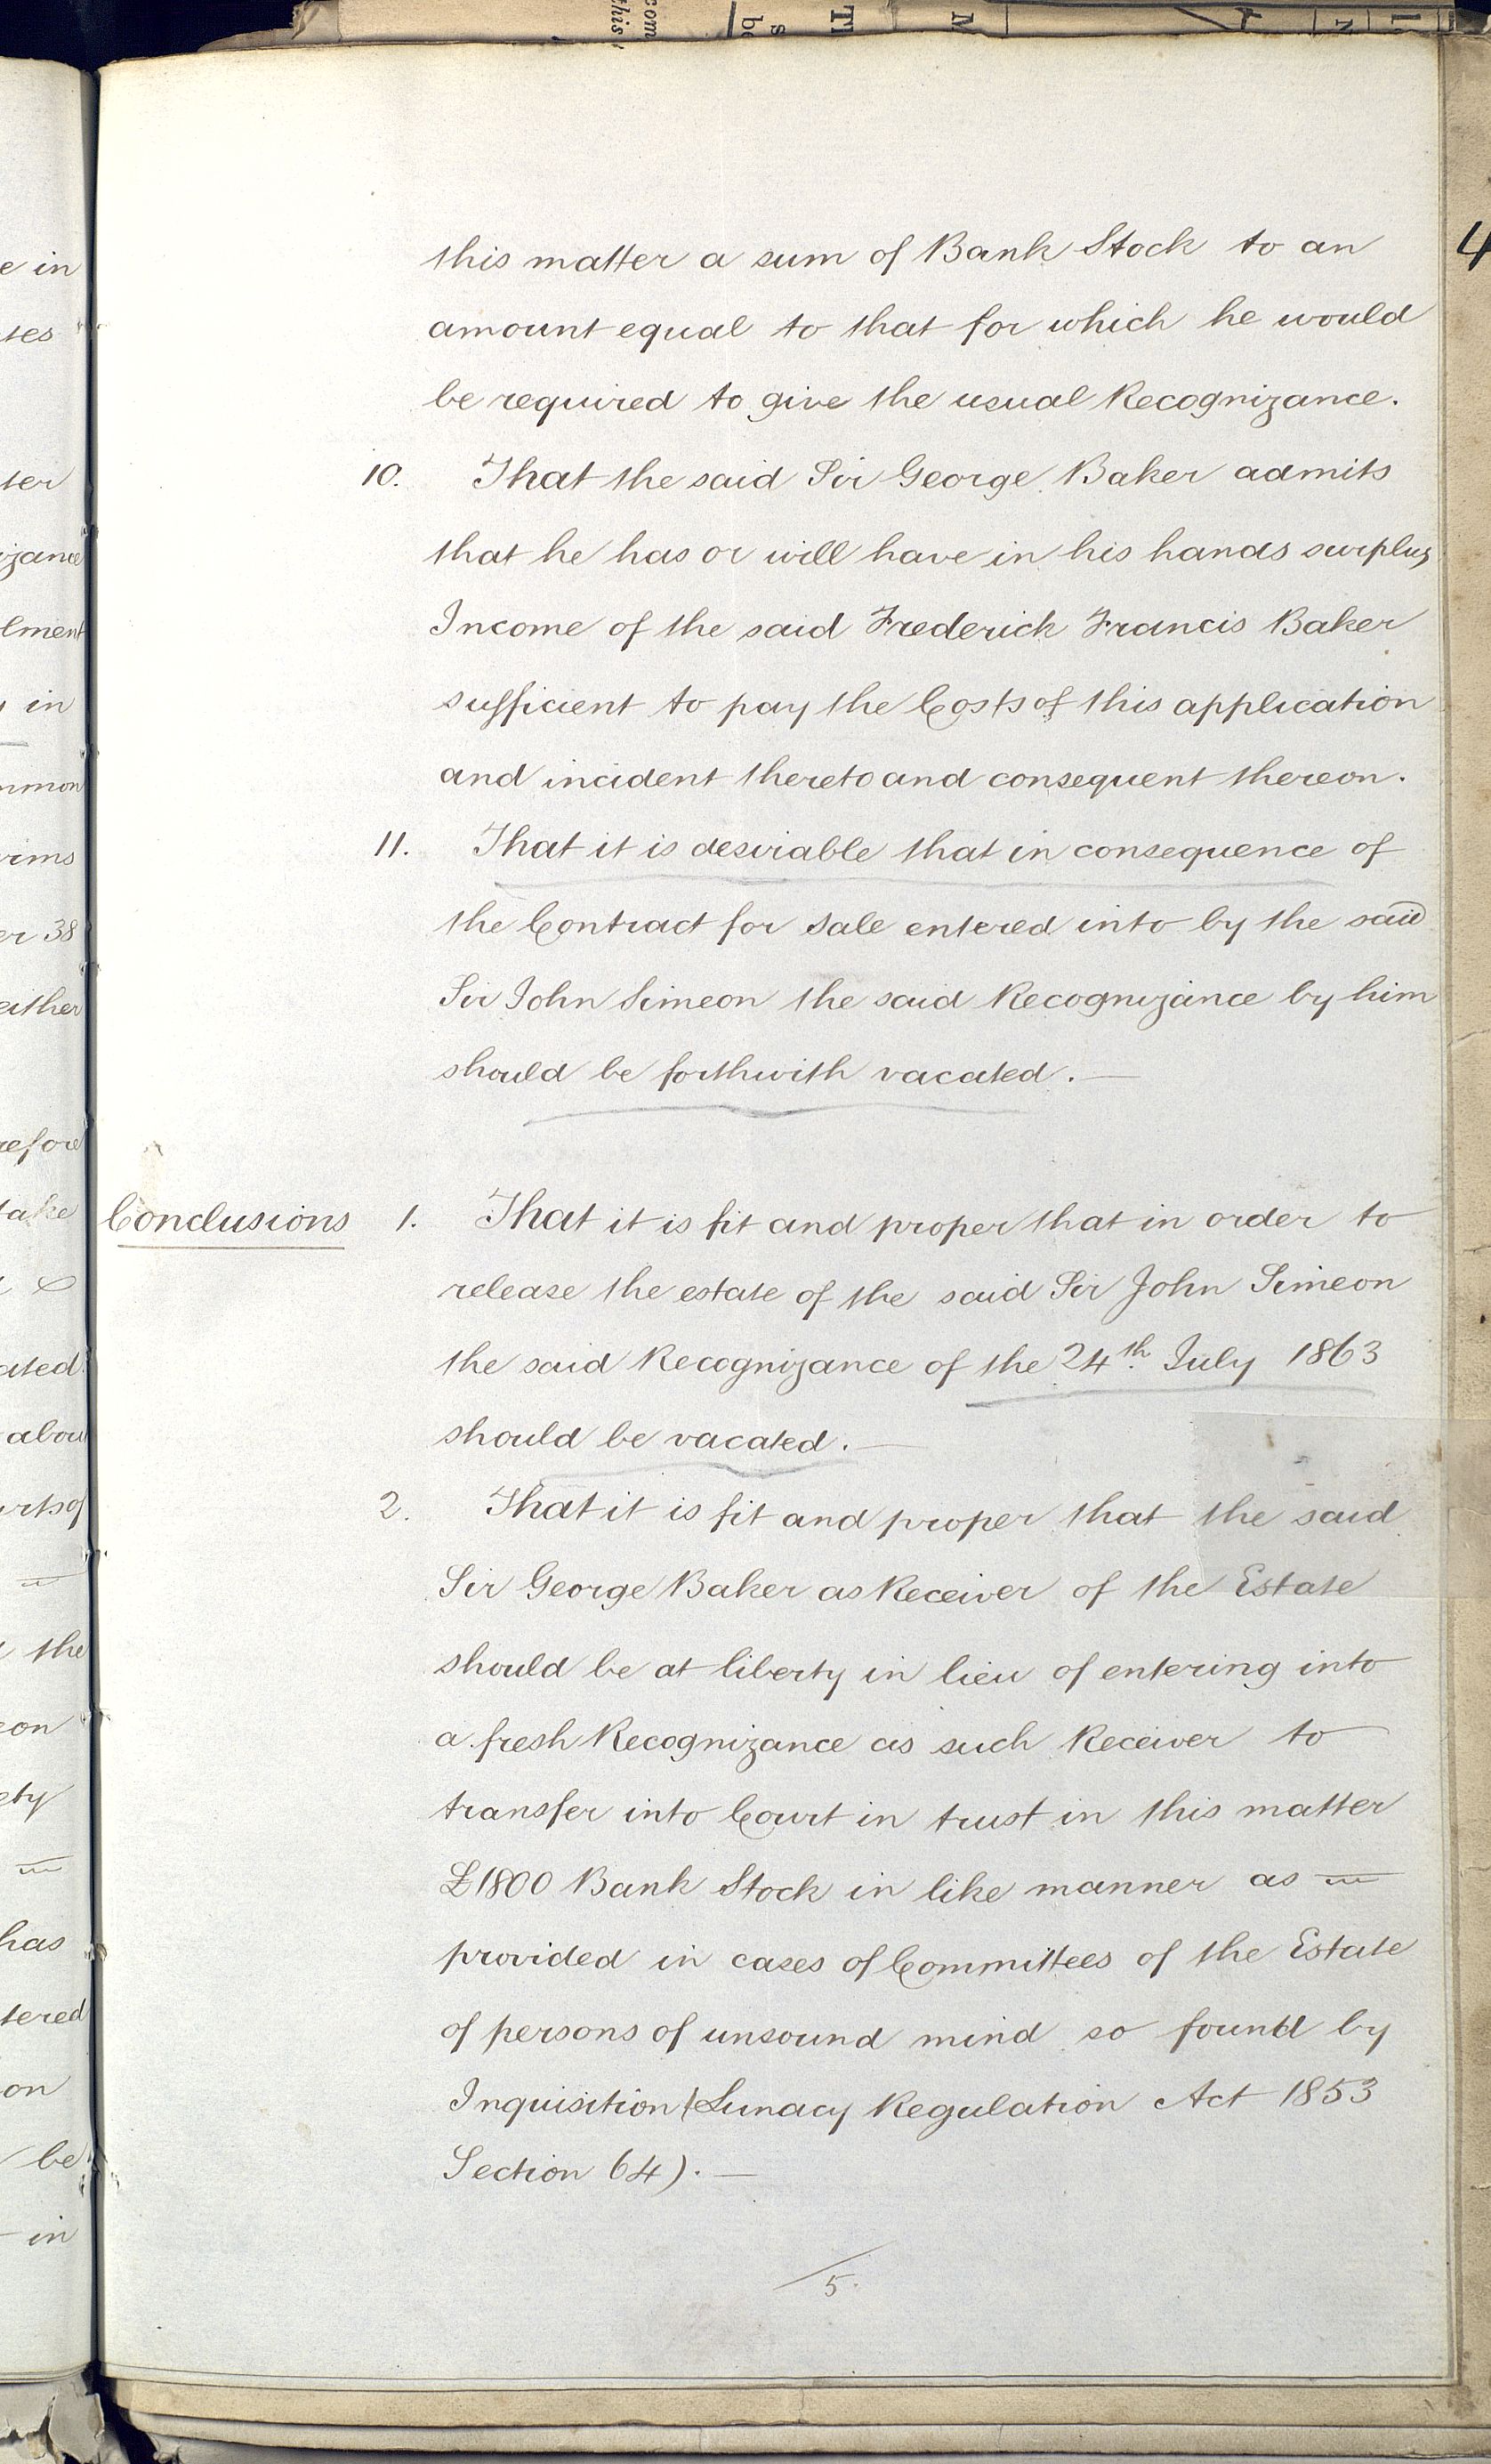 this matter a sum of Bank Stock to an
amount equal to that for which he would
be required to give the usual Recognizance.
10. That the said Sir George Baker admits
that he has or will have in his hands surplus
Income of the said Frederick Francis Baker
sufficient to pay the Costs of this application
and incident thereto and consequent thereon.
11. That it is desirable that in consequence of
the Contract for sale entered into by the said
Sir John Simeon the said Recognizance by him
should be forthwith vacated. —
Conclusions 1. That it is fit and proper that in order to
release the estate of the said Sir John Simeon
the said Recognizance of the 24th July 1863
should be vacated. —
2. That it is fit and proper that the said
Sir George Baker as Receiver of the Estate
should be at liberty in lieu of entering into
a fresh Recognizance as such Receiver to
transfer into Court in trust in this matter
£1800 Bank Stock in like manner as
provided in cases of Committees of the Estate
of persons of unsound mind so found by
Inquisition (Lunacy Regulation Act 1853
Section 64). —
5.
4
e in
tes
ter
izance
lment
in
mmon
rims
er 38
either
refore
take
ated
abou
rts of
the
eon
ety
has
tered
on
be
in
com
this